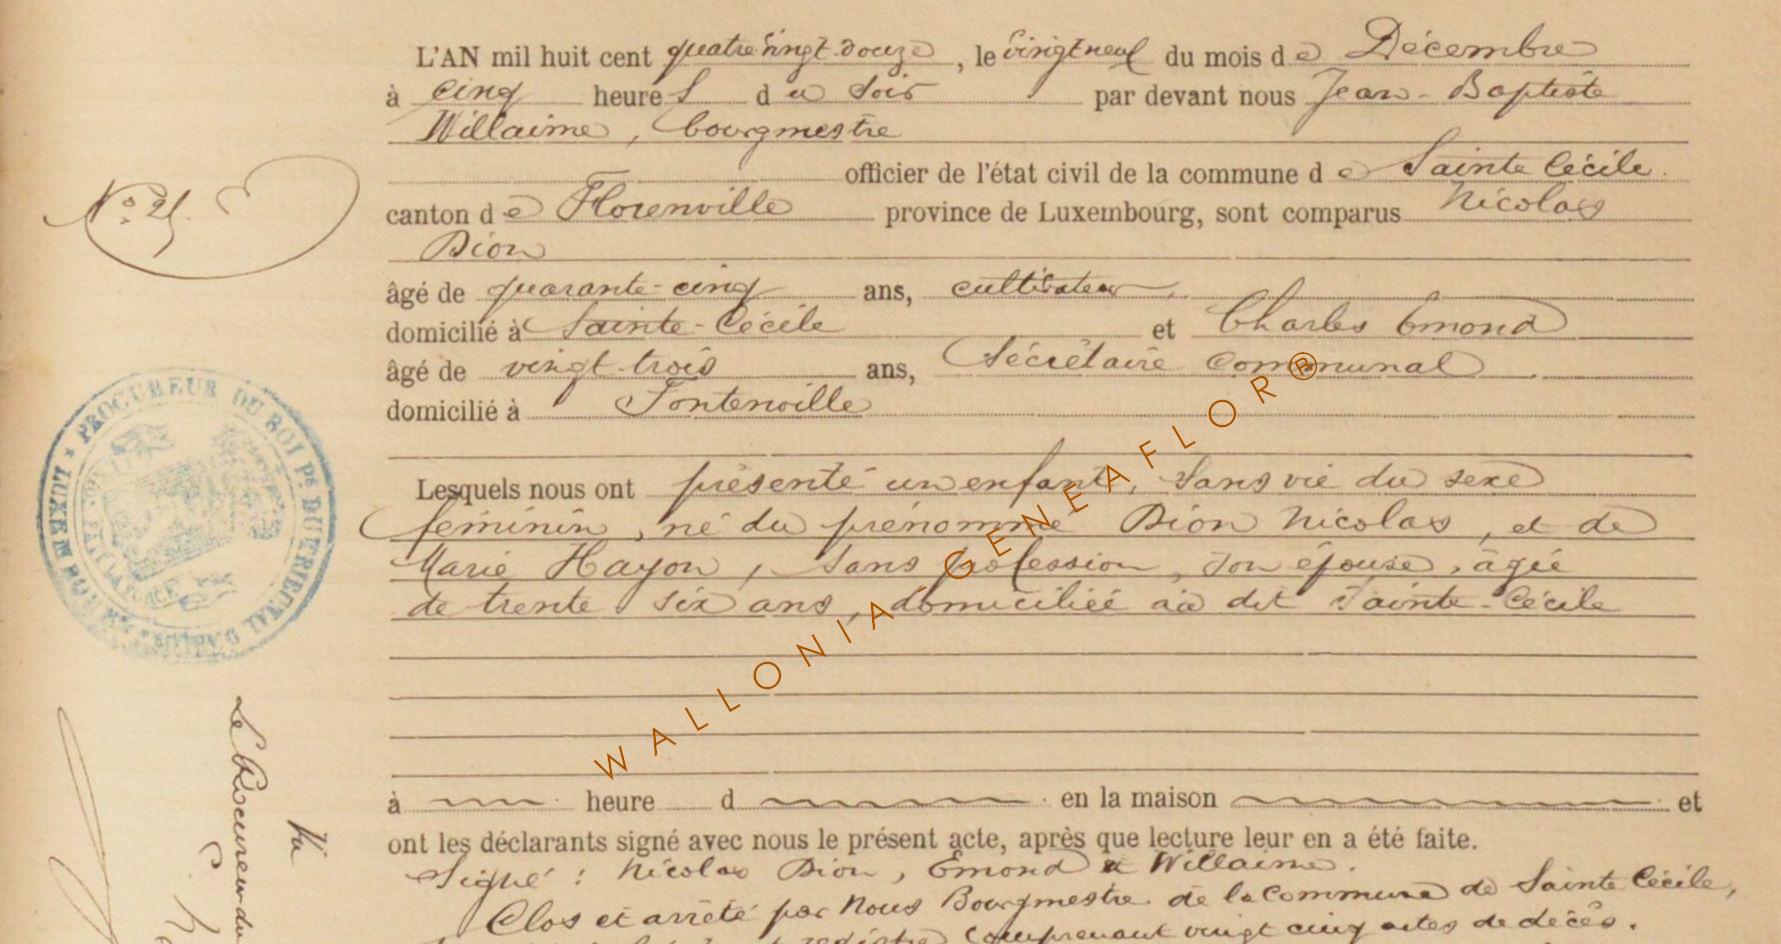 L'AN mil huit cent quatre vingt douze, le vingt neuf du mois de Décembre
à cinq heures du soir par devant nous Jean-Baptiste
Willaime, bourgmestre
officier de l'état civil de la commune de Sainte Cécile.
N° 25.
canton de Florenville province de Luxembourg, sont comparus Nicolas
Dion
âgé de quarante-cinq ans, cultivateur,
domicilié à Sainte-Cécile et Charles Emond
âgé de vingt trois ans, Sécrétaire communal
domicilié à Fontenoille
PROCUREUR DU ROI PS DU TRIBUNAL D'ARLON LUXEMBOURG
L'UNION FAIT LA FORCE
Lesquels nous ont présenté un enfant, sans vie du sexe
féminin, né du prénommé Dion Nicolas, et de
Marie Hayon, sans profession, son épouse, âgée
de trente six ans, domiciliée au dit Sainte-Cécile
WALLONIA GENEAFLOR®
à heure d en la maison et
ont les déclarants signé avec nous le présent acte, après que lecture leur en a été faite.
Signé : Nicolas Dion, Emond et Willaime.
Clos et arrêté par Nous Bourgmestre de la Commune de Sainte Cécile,
registre comprenant vingt cinq actes de décès.
Vu
Le Procureur du